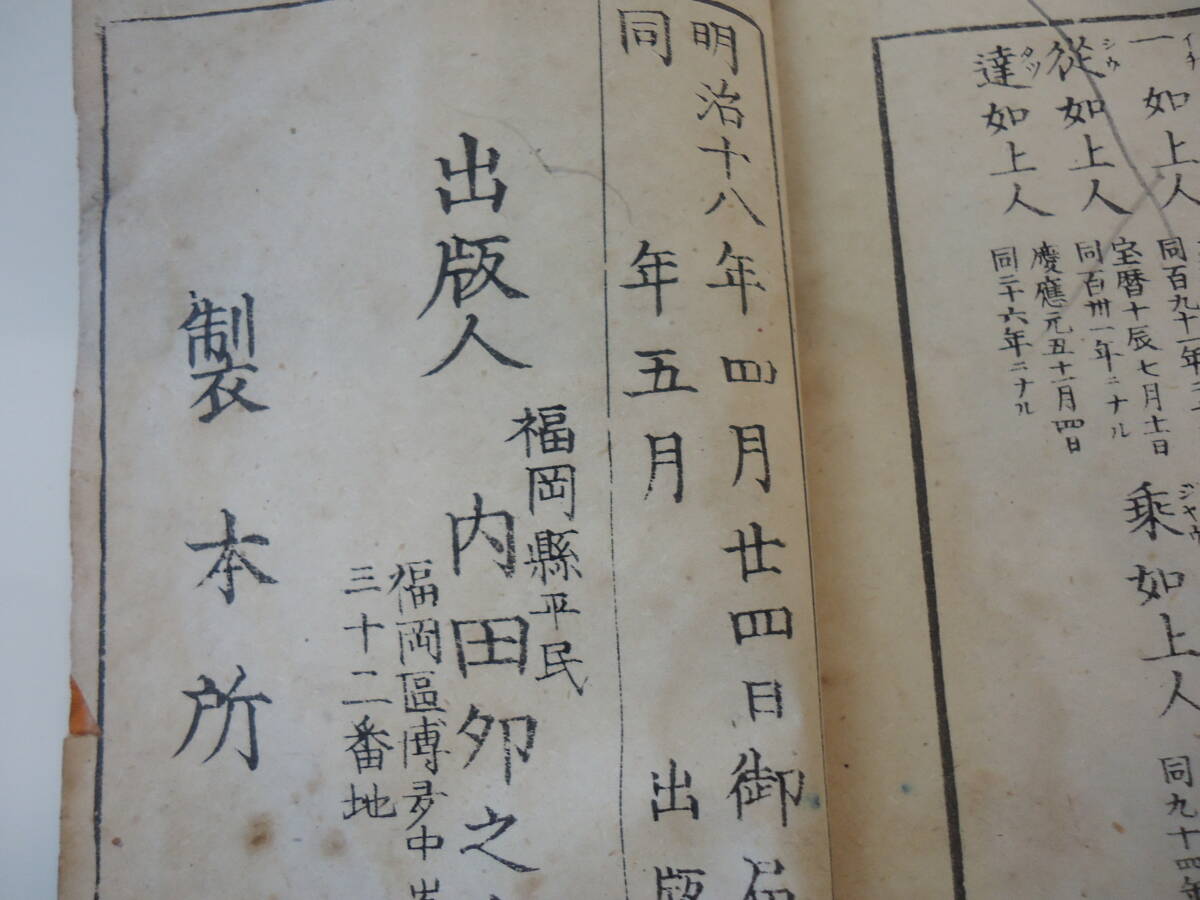 一如上人
イチ
同百九十一年ニ
從如上人
シウ
宝暦十辰七月十一日
同百卅一年ニナル
達如上人
タツ
慶應元五十一月四日
同二十六年ニナル
乘如上人
ジヤウ
同九十四年
明治十八年四月廿四日御届
同年五月出版
出版人
福岡縣平民
内田卯之
福岡區博多中
三十二番地
製本所